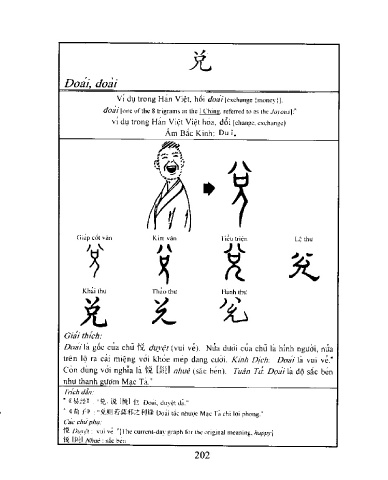 兑
Đoái, đoài
Ví dụ trong Hán Việt, hối đoái [exchange (money)],
đoài [one of the 8 trigrams in the I Ching, referred to as the Joyous].*
ví dụ trong Hán Việt Việt hóa, đổi [change, exchange)
Âm Bắc Kinh: Duì.
Giáp cốt văn Kim văn Tiểu triện Lệ thư
Khải thư Thảo thư Hành thư
Giải thích:
Đoài là gốc của chữ 悦 duyệt (vui vẻ). Nửa dưới của chữ là hình người, nửa
trên lộ ra cái miệng với khóe mép đang cười. Kinh Dịch: Đoài là vui vẻ.*
Còn dùng với nghĩa là 锐 [銳] nhuệ (sắc bén). Tuân Tử: Đoài là độ sắc bén
như thanh gươm Mạc Tà.*
Trích dẫn:
*《易经》"兑, 说 [悦] 也 Đoài, duyệt dã."
*《荀子》: "兑则若莫邪之利锋 Đoài tắc nhược Mạc Tà chi lợi phong."
Các chữ phụ:
悦 Duyệt : vui vẻ *[The current-day graph for the original meaning, happy]
锐 [銳] Nhuệ : sắc bén
202